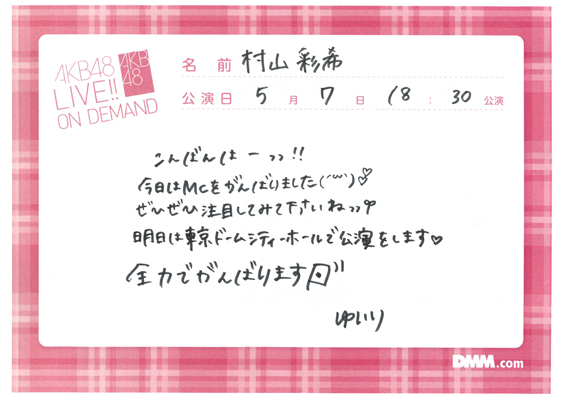 AKB48
LIVE!!
ON DEMAND
AKB
48
名 前 村山 彩希
公演日 5 月 7 日 18 : 30 公演
こんばんはーっっ!!
今日はMCをがんばりました(´ω`)♡
ぜひぜひ注目してみて下さいねっっ
明日は東京ドームシティーホールで公演をします♡
全力でがんばります
ゆいり
DMM.com